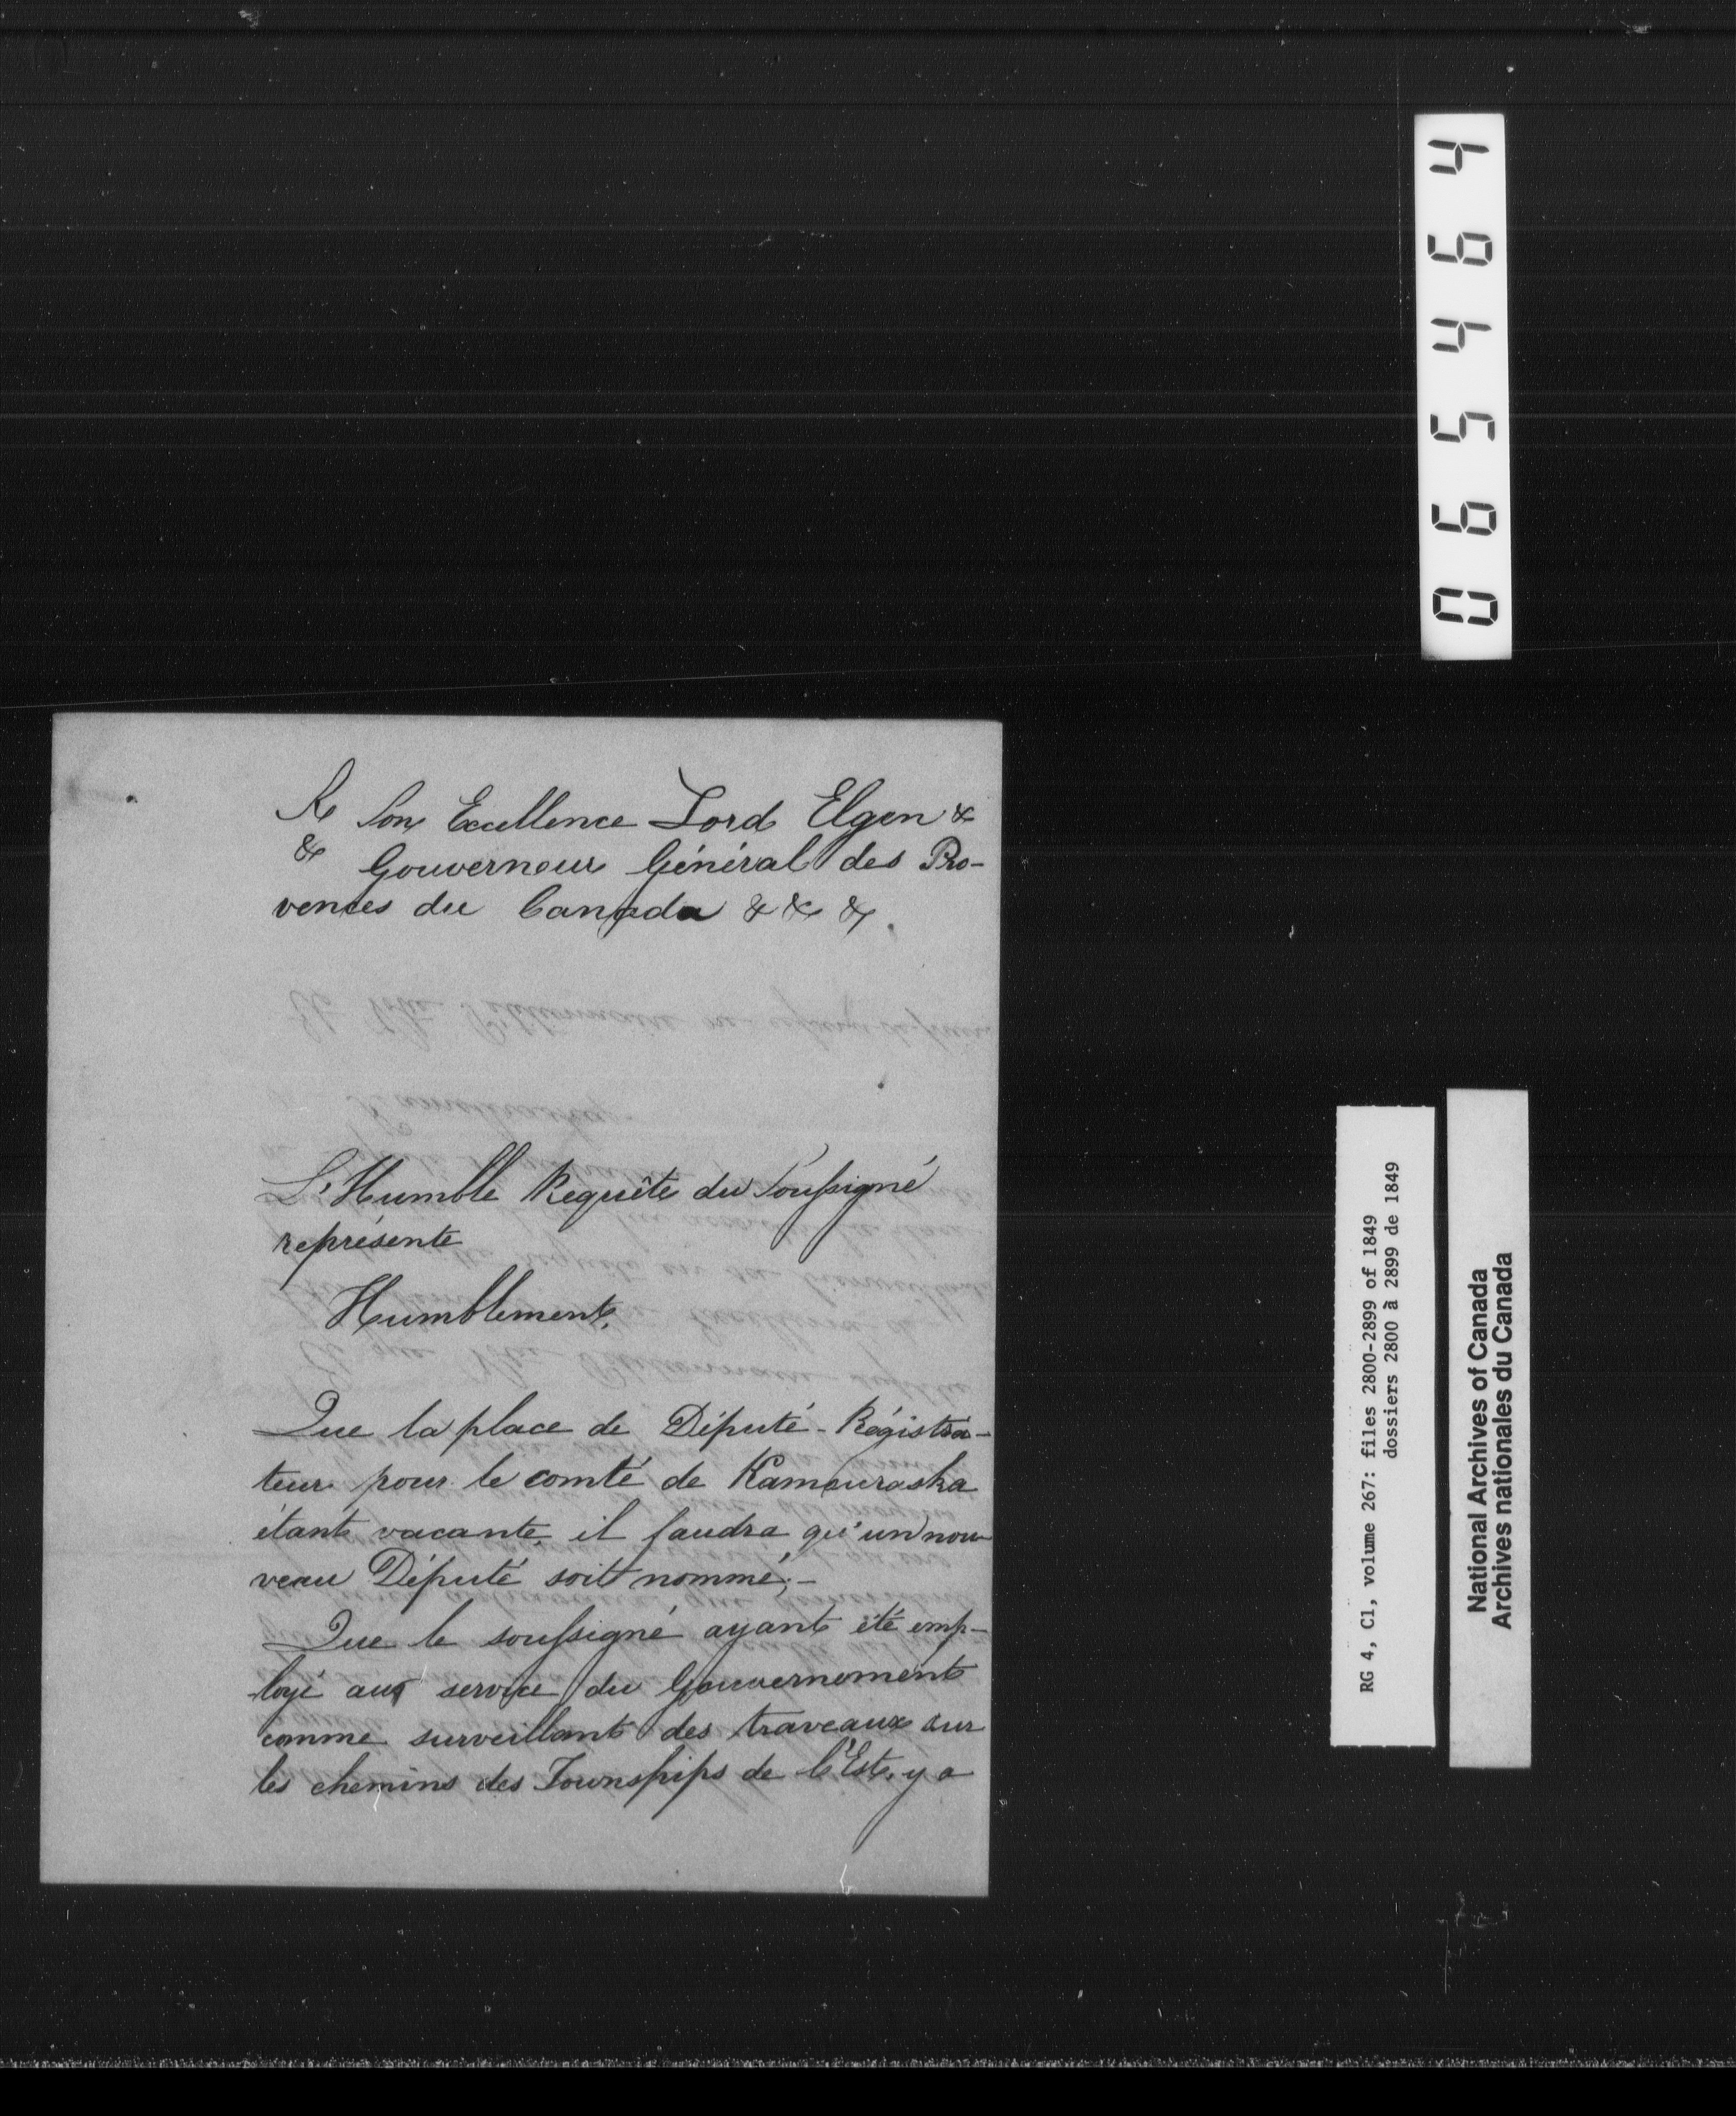 A Son Excellence Lord Elgen &
& Gouverneur Général des Pro-
vences du Canada & & &.
L'Humble Requête du Soussigné
représente
Humblement,
Que la place de Député-Régistra-
teur pour le comté de Kamouraska
étant vacante, il faudra qu'un nou
veau Député soit nommé;-
Que le soussigné ayant été emp-
loyé au service du Gouvernement
comme surveillant des traveaux sur
les chemins des Townships de l'Est, y a
065464
RG 4, C1, volume 267: files 2800-2899 of 1849
dossiers 2800 à 2899 de 1849
National Archives of Canada
Archives nationales du Canada